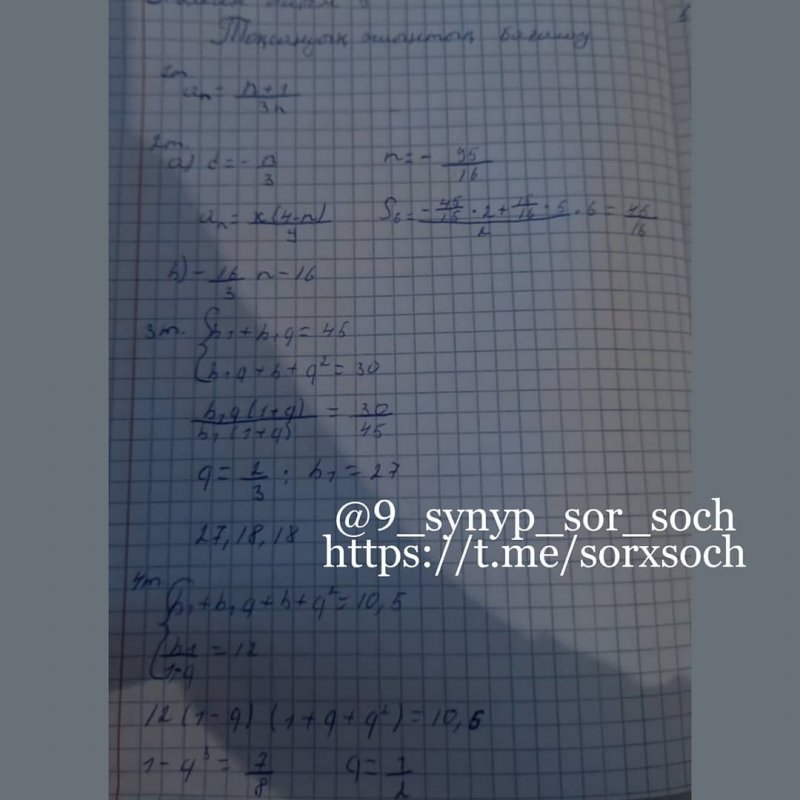 Тоқсандық жиынтық бағалау
aₙ = n+1 / 3n
2m
a) d = - n/3    n = - 95/16
aₙ = x(4-n) / y    S₆ = (-45/16 · 2 + 15/16 · 5) / 2 · 6 = 45/16
b) - 16/3 n - 16
3m. { b₁ + b₁q = 45
b₁q + b + q² = 30
b₁q(1+q) / b₁(1+q) = 30/45
q = 2/3 ; b₁ = 27
27, 18, 18
@9_synyp_sor_soch
https://t.me/sorxsoch
4m { b₁ + b₁q + b + q² = 10,5
b₁ / 1-q = 12
12(1-q)(1+q+q²) = 10,5
1-q³ = 7/8    q = 1/2